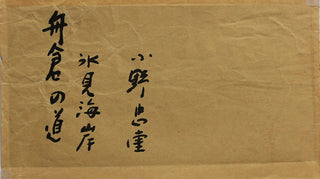 小野忠重
氷見海岸
舟倉の道